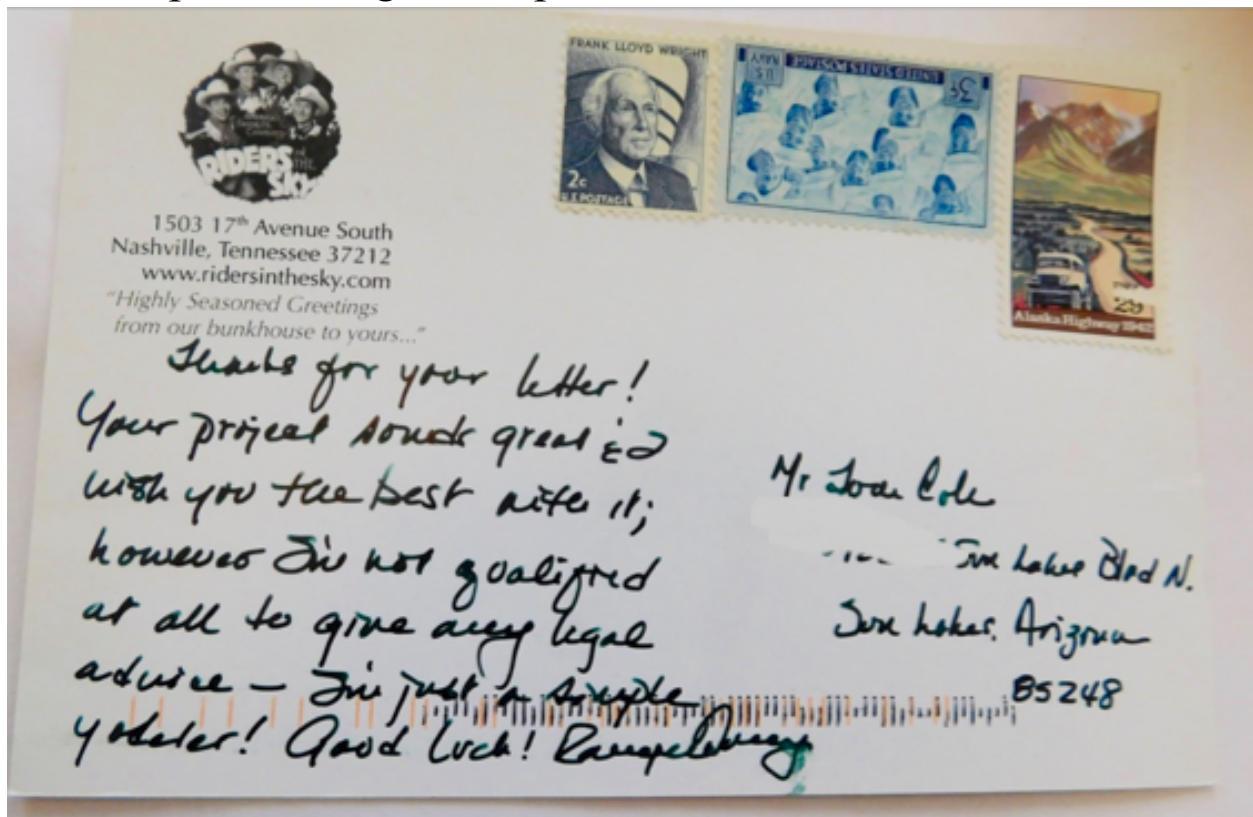 RIDERS IN THE SKY
1503 17th Avenue South
Nashville, Tennessee 37212
www.ridersinthesky.com
"Highly Seasoned Greetings
from our bunkhouse to yours..."
FRANK LLOYD WRIGHT
2c
U.S. POSTAGE
U.S. NAVY
UNITED STATES POSTAGE
3¢
29
Alaska Highway 1942
Thanks for your letter!
Your project sounds great & I
wish you the best with it;
however I'm not qualified
at all to give any legal
advice – I'm just a simple
yodeler! Good luck! Ranger Doug
Mr Cole
Sun Lakes Blvd N.
Sun Lakes, Arizona
85248